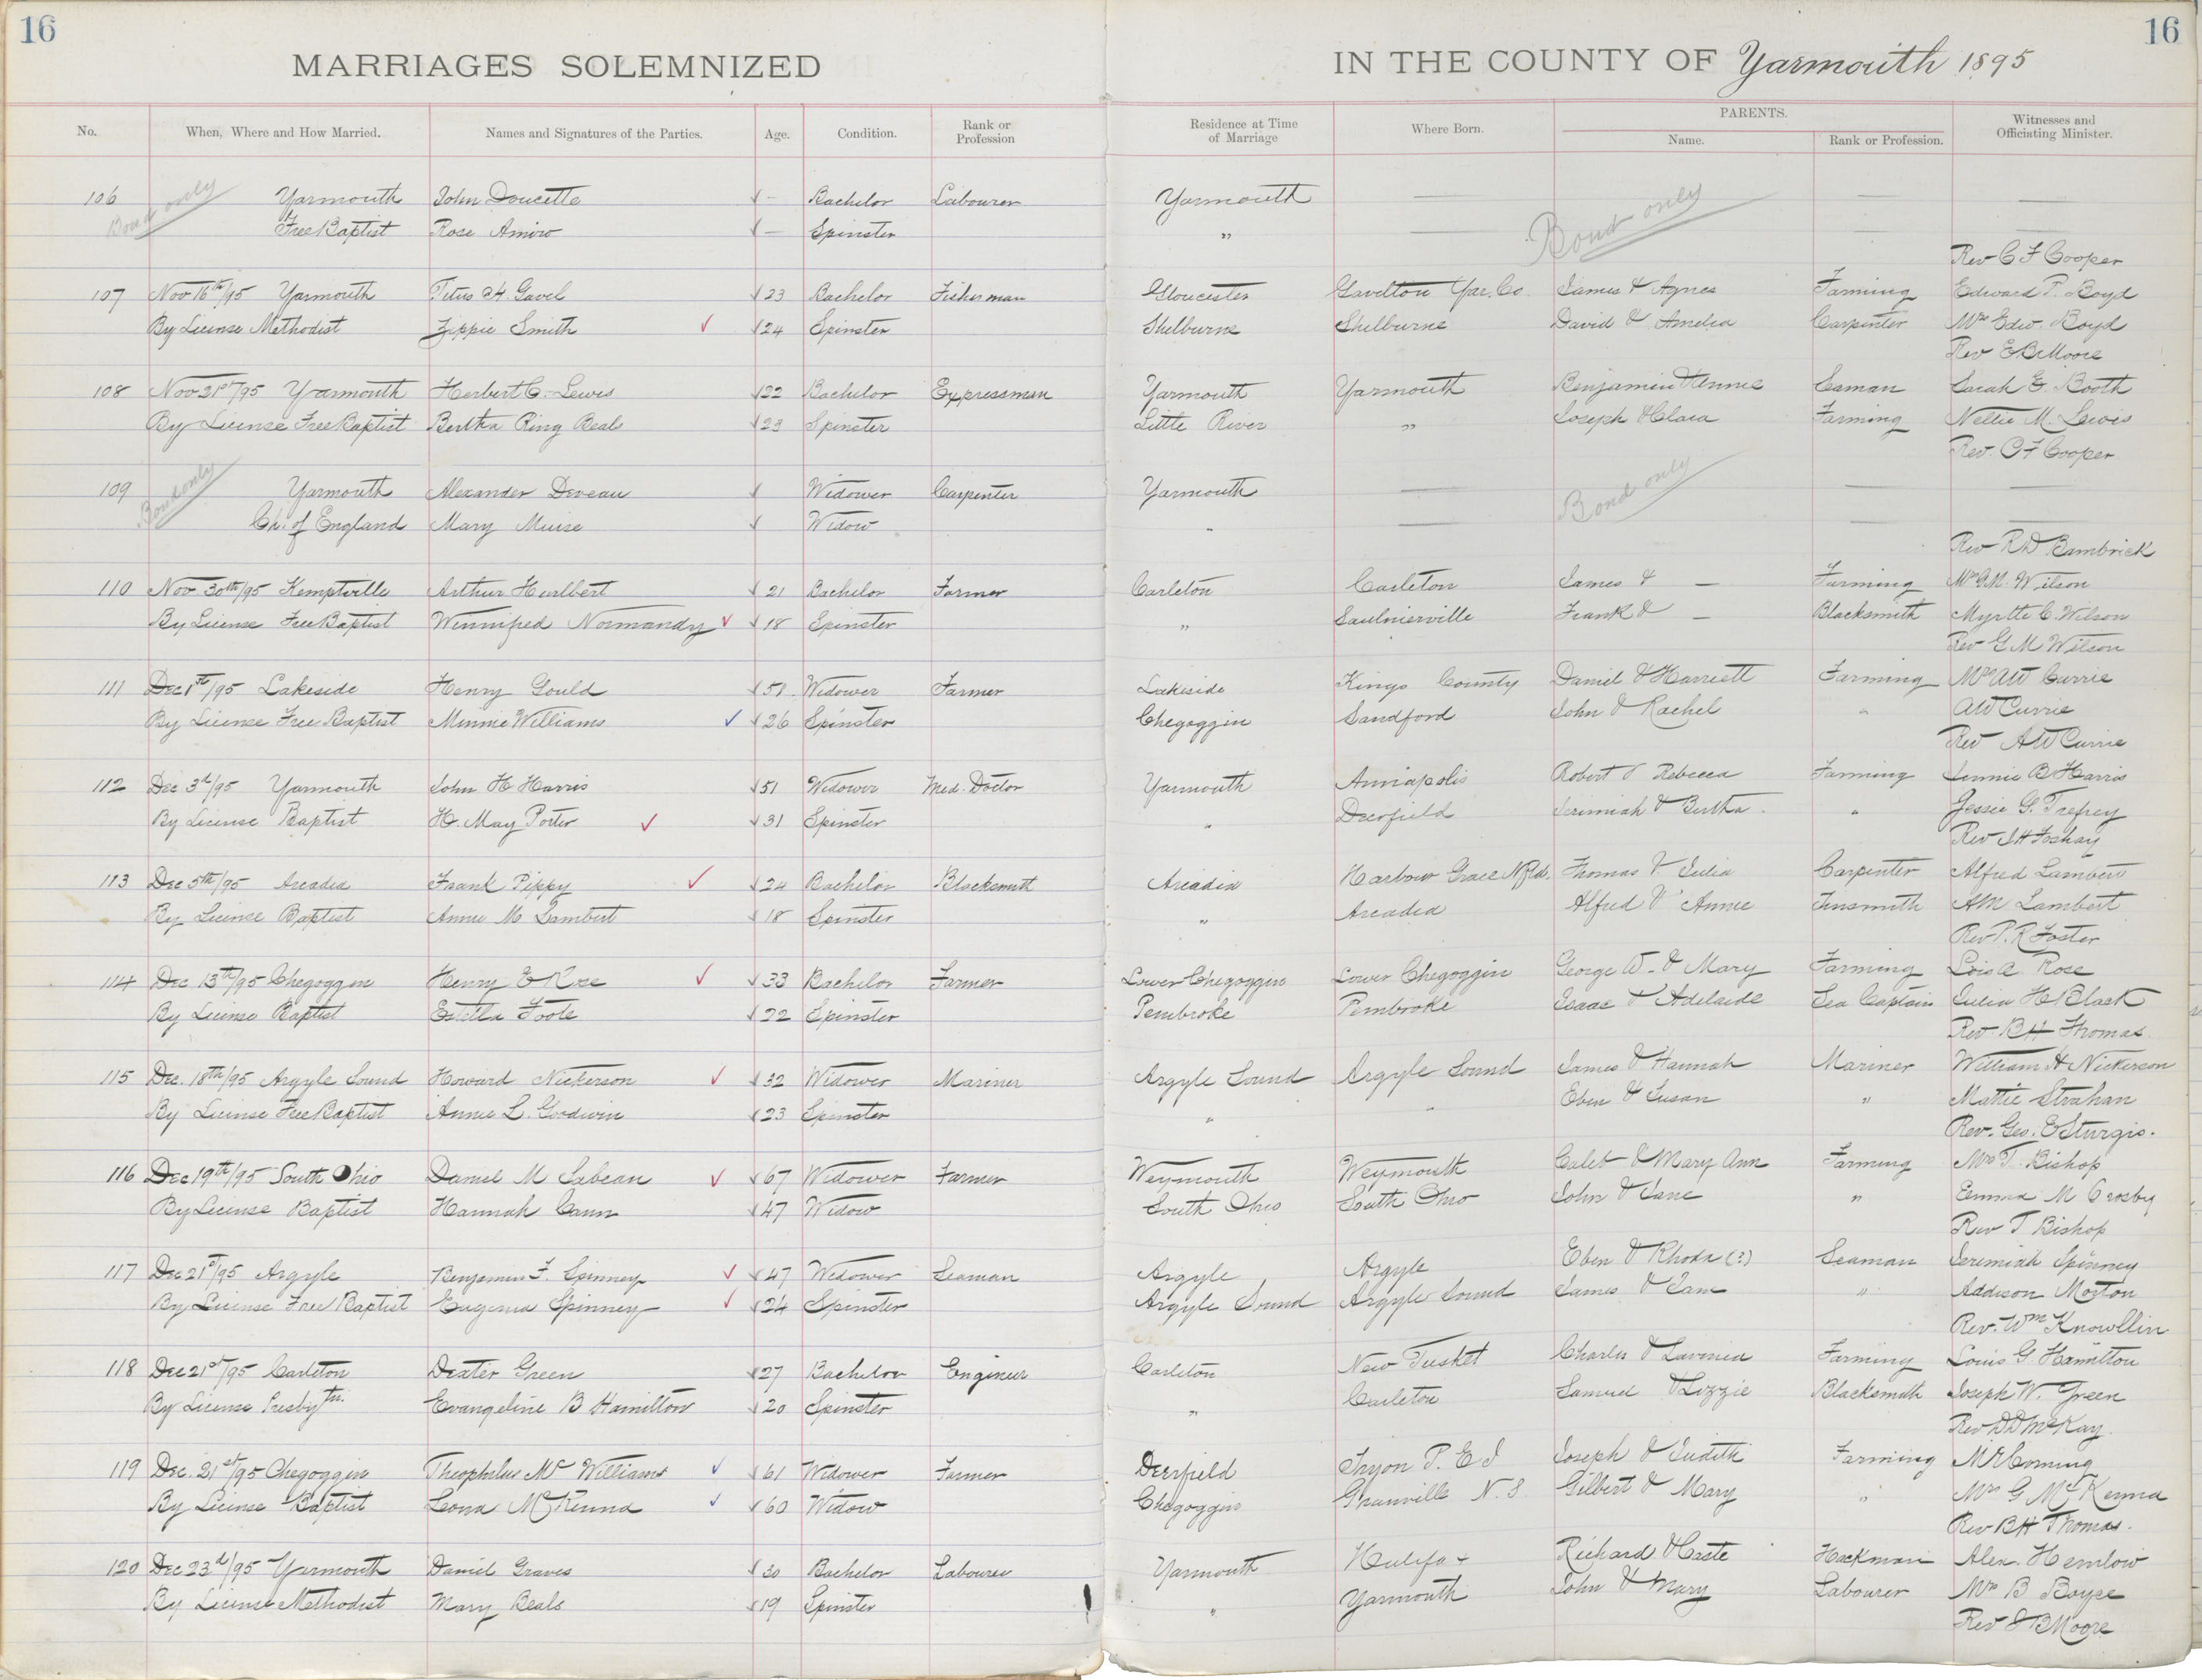 16 16
MARRIAGES SOLEMNIZED IN THE COUNTY OF Yarmouth 1895
No. When, Where and How Married. Names and Signatures of the Parties. Age. Condition. Rank or Profession Residence at Time of Marriage Where Born. PARENTS. Name. Rank or Profession. Witnesses and Officiating Minister.
106 Bond only Yarmouth John Doucette — Bachelor Labourer Yarmouth — Bond only — —
Free Baptist Rose Amiro — Spinster " — — —
Rev C F Cooper
107 Nov 16th/95 Yarmouth Titus A. Gavel 23 Bachelor Fisherman Gloucester Gavelton Yar. Co. James & Agnes Farming Edward P. Boyd
By License Methodist Zippie Smith 24 Spinster Shelburne Shelburne David & Amelia Carpenter Mrs Edw. Boyd
Rev E B Moore
108 Nov 21st/95 Yarmouth Herbert C. Lewis 22 Bachelor Expressman Yarmouth Yarmouth Benjamin & Annie Seaman Sarah E Booth
By License Free Baptist Bertha Ring Beals 23 Spinster Little River " Joseph & Clara Farming Nellie M. Lewis
Rev. C F Cooper
109 Bond only Yarmouth Alexander Deveau Widower Carpenter Yarmouth — Bond only — —
Ch. of England Mary Muise Widow " — — —
Rev R D Bambrick
110 Nov. 30th/95 Kemptville Arthur Hurlbert 21 Bachelor Farmer Carleton Carleton James & — Farming Mrs G.M. Wilson
By License Free Baptist Winnifred Normandy 18 Spinster " Saulnierville Frank & — Blacksmith Myrtle C. Wilson
Rev G M Wilson
111 Dec 1st/95 Lakeside Henry Gould 51 Widower Farmer Lakeside Kings County Daniel & Harriett Farming Mrs AW Currie
By License Free Baptist Minnie Williams 26 Spinster Chegoggin Sandford John & Rachel " AW Currie
Rev AW Currie
112 Dec 3d/95 Yarmouth John H Harris 51 Widower Med. Doctor Yarmouth Annapolis Robert & Rebecca Farming Jennie B Harris
By License Baptist H. May Porter 31 Spinster " Deerfield Jerimiah & Bertha " Jessie G. Trefrey
Rev J H Foshay
113 Dec 5th/95 Arcadia Frank Pippy 24 Bachelor Blacksmith Arcadia Harbour Grace Nfld. Thomas & Julia Carpenter Alfred Lambert
By License Baptist Annie M Lambert 18 Spinster " Arcadia Alfred & Annie Tinsmith AM Lambert
Rev P. R Foster
114 Dec 13th/95 Chegoggin Henry E Rose 33 Bachelor Farmer Lower Chegoggin Lower Chegoggin George W. & Mary Farming Lois A Rose
By License Baptist Estella Foote 22 Spinster Pembroke Pembroke Isaac & Adelaide Sea Captain Julia H Black
Rev B H Thomas
115 Dec. 18th/95 Argyle Sound Howard Nickerson 32 Widower Mariner Argyle Sound Argyle Sound James & Hannah Mariner William H Nickerson
By License Free Baptist Annie L. Goodwin 23 Spinster " " Eben & Susan " Mattie Strahan
Rev. Geo. E Sturgis.
116 Dec 19th/95 South Ohio Daniel M Sabean 67 Widower Farmer Weymouth Weymouth Caleb & Mary Ann Farming Mrs T. Bishop
By License Baptist Hannah Cann 47 Widow South Ohio South Ohio John & Jane " Emma M Crosby
Rev T Bishop
117 Dec 21st/95 Argyle Benjamin F. Spinney 47 Widower Seaman Argyle Argyle Eben & Rhoda (?) Seaman Jeremiah Spinney
By License Free Baptist Eugenia Spinney 24 Spinster Argyle Sound Argyle Sound James & Jane " Addison Morton
Rev. Wm Knowllin
118 Dec 21st/95 Carleton Dexter Green 27 Bachelor Engineer Carleton New Tusket Charles & Lavinia Farming Louis G. Hamilton
By License Presbytn. Evangeline B Hamilton 20 Spinster " Carleton Samuel & Lizzie Blacksmith Joseph W. Green
Rev D D McKay
119 Dec. 21st/95 Chegoggin Theophilus Mc Williams 61 Widower Farmer Deerfield Tryon P. E I Joseph & Judith Farming M R Corning
By License Baptist Leona McKenna 60 Widow Chegoggin Granville N. S. Gilbert & Mary " Mrs G McKenna
Rev B H Thomas.
120 Dec 23d/95 Yarmouth Daniel Graves 30 Bachelor Labourer Yarmouth Halifax Richard & Caste Hackman Alex. Hemlow
By License Methodist Mary Beals 19 Spinster " Yarmouth John & Mary Labourer Mrs B Boyce
Rev E B Moore